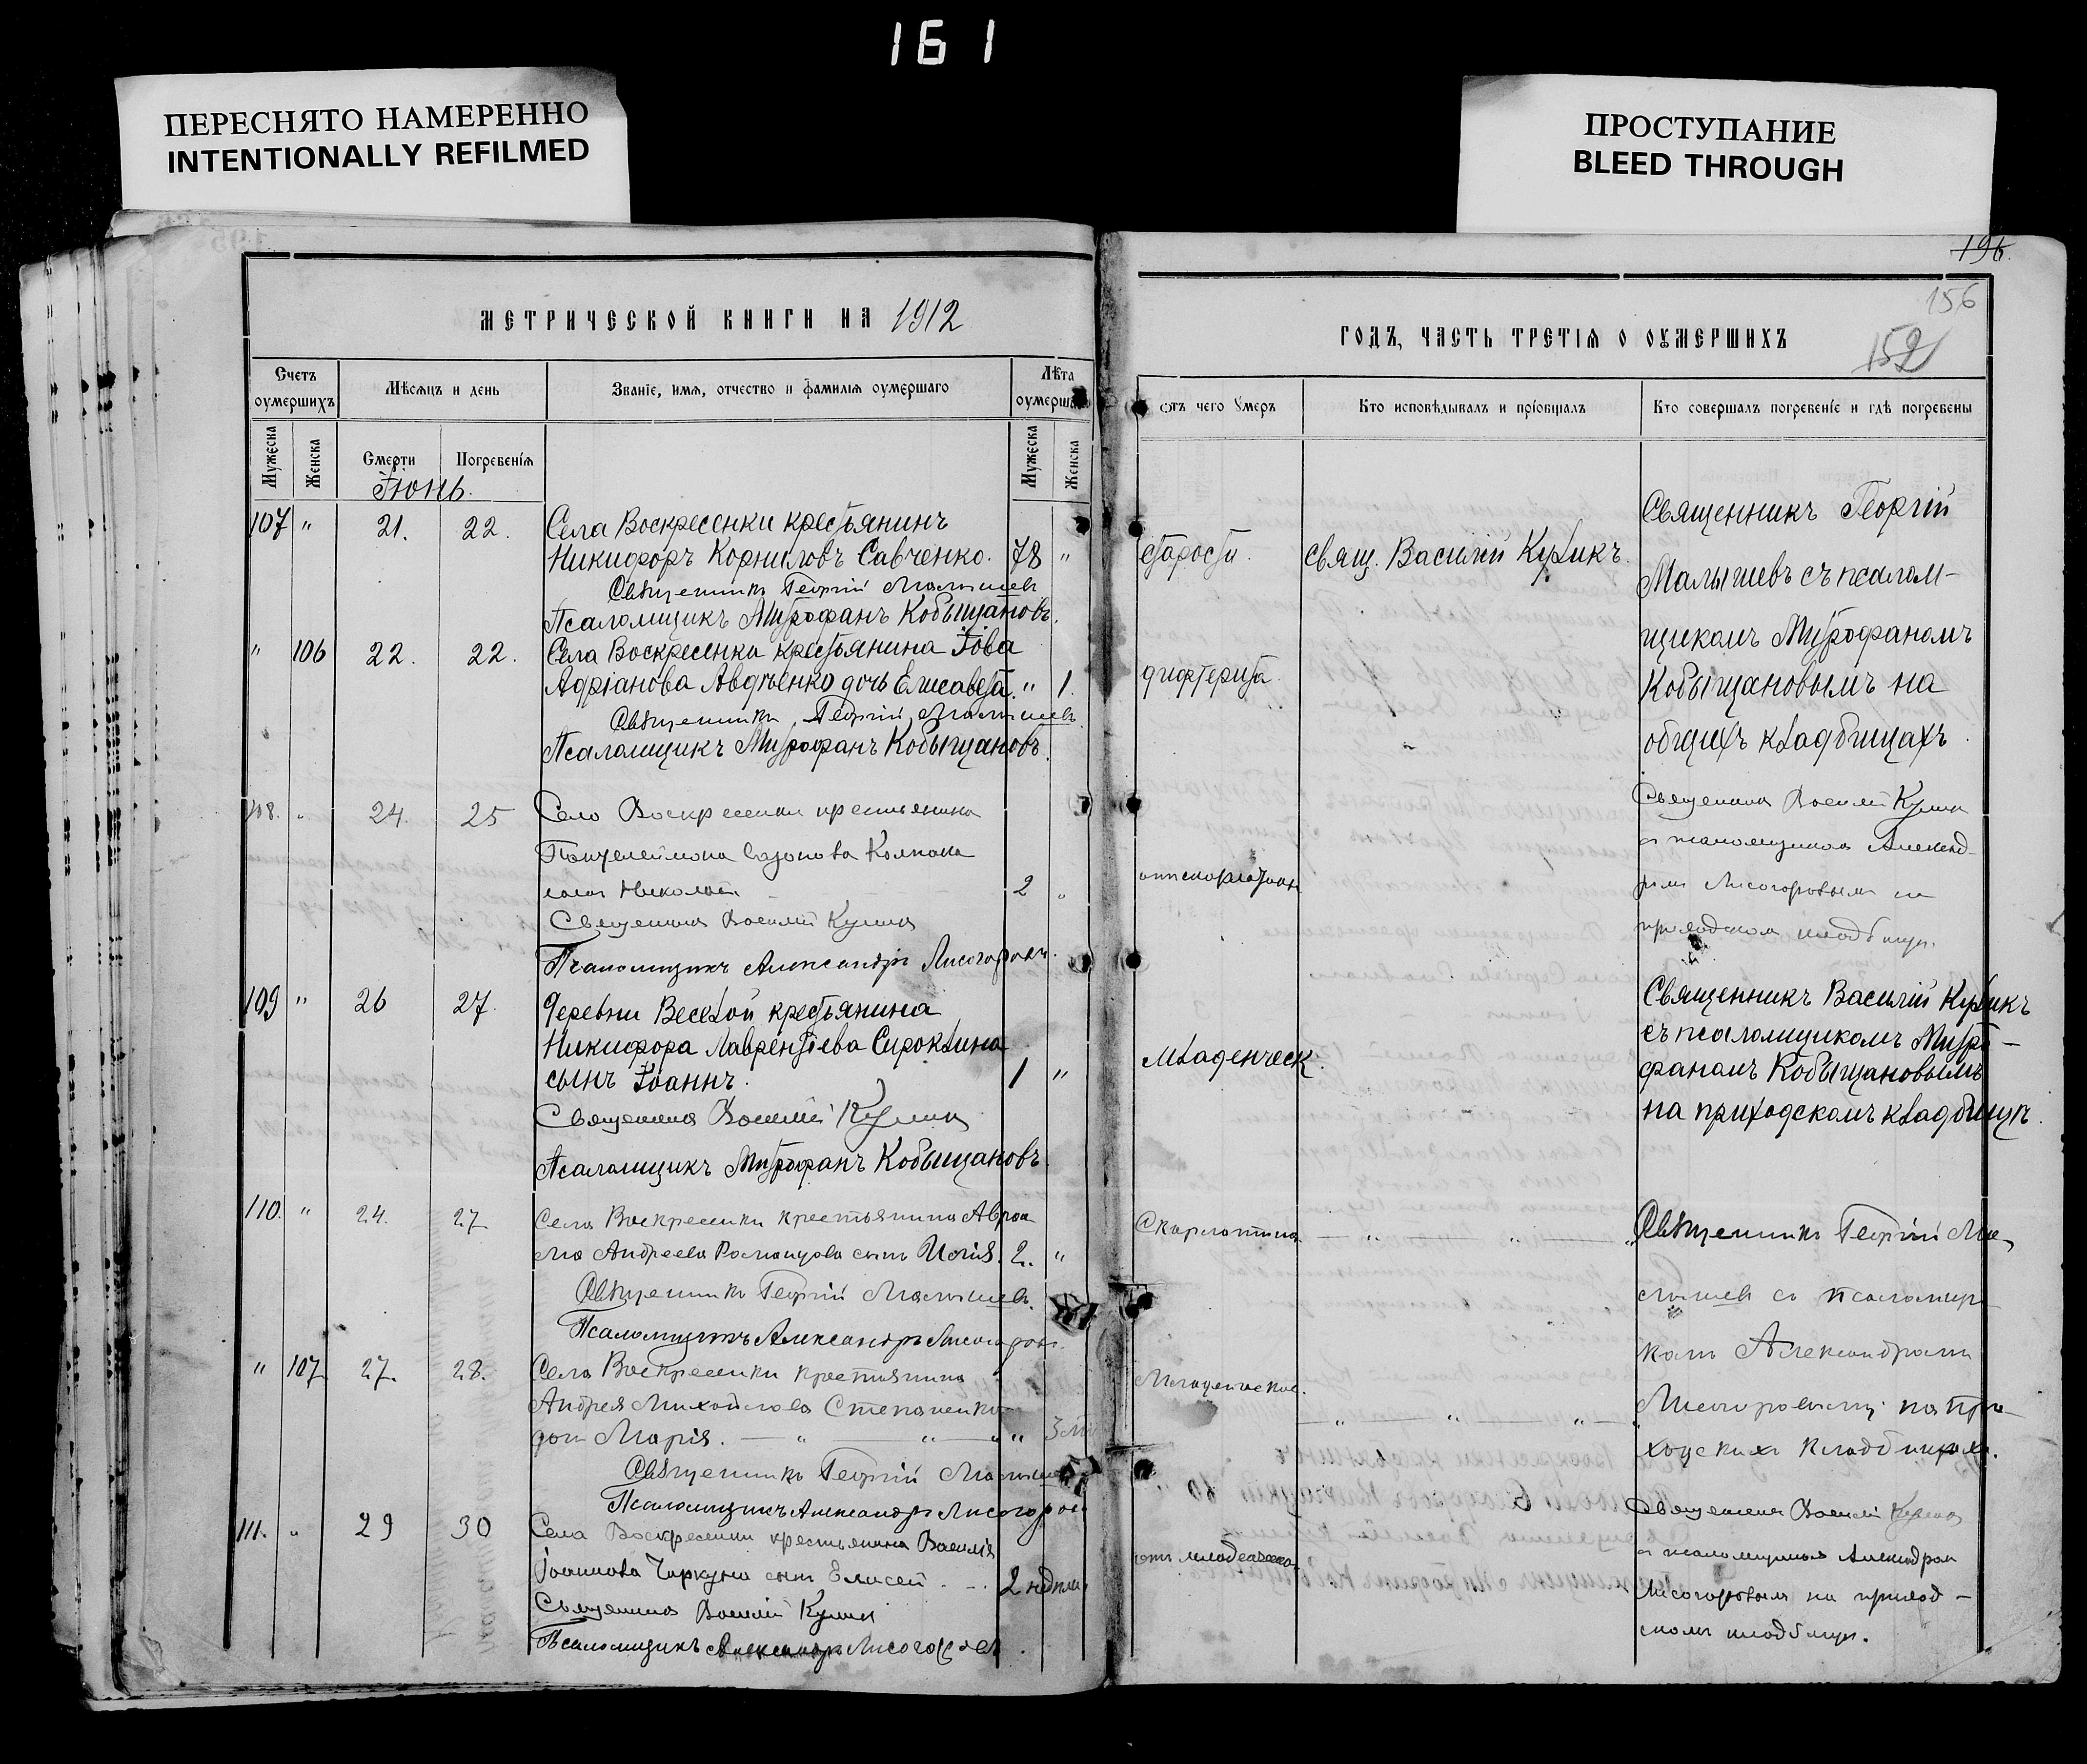 161
ПЕРЕСНЯТО НАМЕРЕННО
INTENTIONALLY REFILMED
ПРОСТУПАНИЕ
BLEED THROUGH
МЕТРИЧЕСКОЙ КНИГИ НА 1912
Счетъ оумершихъ
Мѣсяцъ и день
Званіе, имя, отчество и фамилія оумершаго
Лѣта
Мужеска
Женска
Смерти
Погребенія
Мужеска
Женска
Іюнь.
107 " 21. 22. Села Воскресенки крестьянинъ
Никифоръ Корниловъ Савченко. 78 "
Священникъ Георгій Малышевъ
Псаломщикъ Митрофанъ Кобыщановъ.
" 106 22. 22. Села Воскресенки крестьянина Іова
Адріанова Авдѣенко дочь Елисавета. " 1.
Священникъ Георгій Малышевъ
Псаломщикъ Митрофанъ Кобыщановъ.
108. " 24. 25 Село Воскресенки крестьянина
Пантелеймона Сазонова Колпака
Николай 2 "
Священникъ Василій Куликъ
Псаломщикъ Александръ Лисогоровъ.
109 " 26 27. Деревни Веселой крестьянина
Никифора Лаврентіева Сироклина
сынъ Іоаннъ. 1 "
Священникъ Василій Куликъ
Псаломщикъ Митрофанъ Кобыщановъ.
110. " 24. 27 Села Воскресенки крестьянина Авраа
ма Андреева Романцова сынъ Илія. 2. "
Священникъ Георгій Малышевъ.
Псаломщикъ Александръ Лисогоровъ.
" 107 27. 28. Села Воскресенки крестьянина
Андрея Михайлова Степаненко
дочь Марія. " " " " 3
Священникъ Георгій Малышевъ
Псаломщикъ Александръ Лисогоровъ
111. " 29 30 Села Воскресенки крестьянина Василія
Іоаннова Чаркуна сынъ Елисей 2
Священникъ Василій Куликъ
Псаломщикъ Александръ Лисогоровъ.
196.
156
152
ГОДЪ, ЧАСТЬ ТРЕТІЯ О ОУМЕРШИХЪ
отъ чего умеръ
Кто исповѣдывалъ и пріобщалъ
Кто совершалъ погребеніе и гдѣ погребены
Старости. Свящ. Василій Куликъ.
Священникъ Георгій
Малышевъ съ псалом-
щикомъ Митрофаномъ
Кобыщановымъ на
общихъ кладбищахъ.
дифтерита.
Священникъ Василій Куликъ
съ псаломщикомъ Александ-
ромъ Лисогоровымъ на
приходскомъ кладбищѣ.
Священникъ Василій Куликъ
съ псаломщикомъ Митро-
фаномъ Кобыщановымъ
на приходскомъ кладбищѣ.
младенческ.
Скарлатина " "
Священникъ Георгій Ма-
лышевъ съ псаломщи-
комъ Александромъ
Лисогоровымъ на при-
ходскихъ кладбищахъ.
Младенческое. " " "
Священникъ Василій Куликъ
съ псаломщикомъ Александром
Лисогоровымъ на приход-
скомъ кладбищѣ.
отъ младенческой